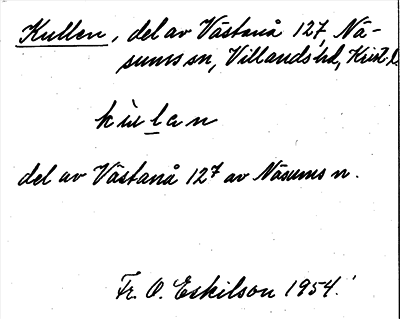 Kullen, del av Västanå 127, Nä-
sums sn, Villands hd, Krist. l.
kùlan
del av Västanå 127 av Näsums n.
Fr. O. Eskilson 1954.